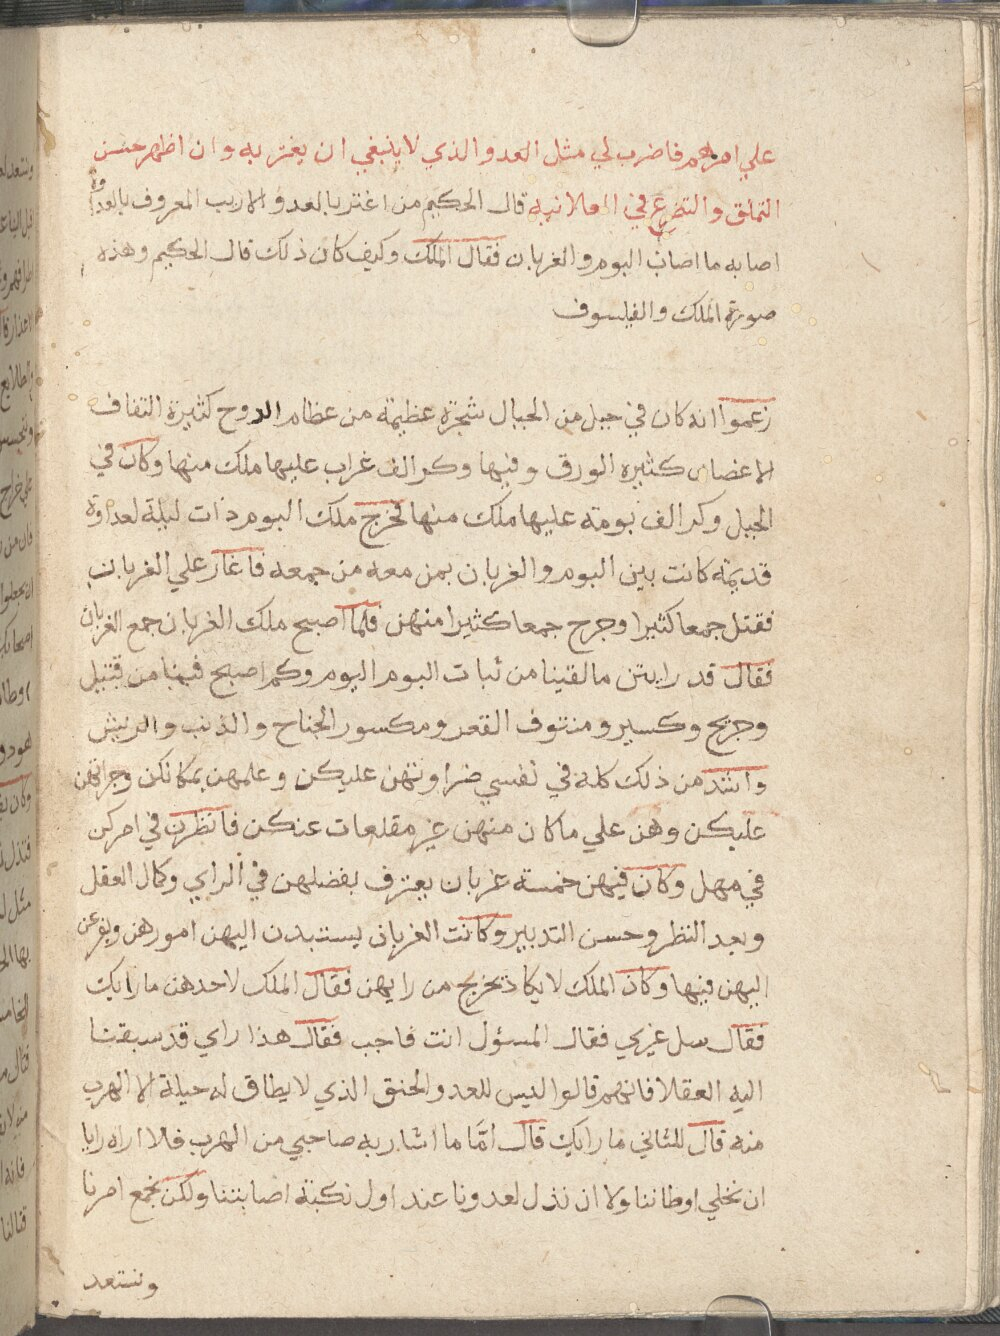 علي امرهم فاضرب لي مثل العدو الذي لا ينبغي ان يغتر به وان اظهر حسن
التملق والتضرع في العلانيه قال الحكيم من اغتر بالعدو الاريب المعروف بالعداوة
اصابه ما اصاب البوم والغربان فقال الملك وكيف كان ذلك قال الحكيم وهذه
صورة الملك والفيلسوف
زعموا انه كان في جبل من الجبال شجرة عظيمة من عظام الدوح كثيرة التفاف
الاغصان كثيرة الورق وفيها وكر الف غراب عليها ملك منها وكان في
الجبل وكر الف بومة عليها ملك منها فخرج ملك البوم ذات ليلة لعداوة
قديمة كانت بين البوم والغربان بمن معه من جمعه فاغار علي الغربان
فقتل جمعا كثيرا وجرح جمعا كثيرا منهن فلما اصبح ملك الغربان جمع الغربان
فقال قد رايتن ما لقينا من ثبات البوم اليوم وكم اصبح فينا من قتيل
وجريح وكسير ومنتوف القعر ومكسور الجناح والذنب والريش
واشد من ذلك كله في نفسي ضراوتهن عليكن وعلمهن بمكانكن وجراتهن
عليكن وهن علي ما كان منهن غير مقلعات عنكن فانظرن في امركن
في مهل وكان فيهن خمسة غربان يعترف بفضلهن في الراي وكمال العقل
وبعد النظر وحسن التدبير وكانت الغربان يستبدن اليهن امورهن ويفزعن
اليهن فيها وكان الملك لا يكاد يخرج من رايهن فقال الملك لاحدهن ما رايك
فقال سل غيري فقال المسؤل انت فاجب فقال هذا راي قد سبقتنا
اليه العقلا فانهم قالوا ليس للعدو الحنق الذي لا يطاق له حيلة الا الهرب
منه قال للثاني ما رايك قال امَّا ما اشار به صاحبي من الهرب فلا اراه رايا
ان نخلي اوطاننا ولا ان نذل لعدونا عند اول نكبة اصابتنا ولكن نجمع امرنا
ونستعد